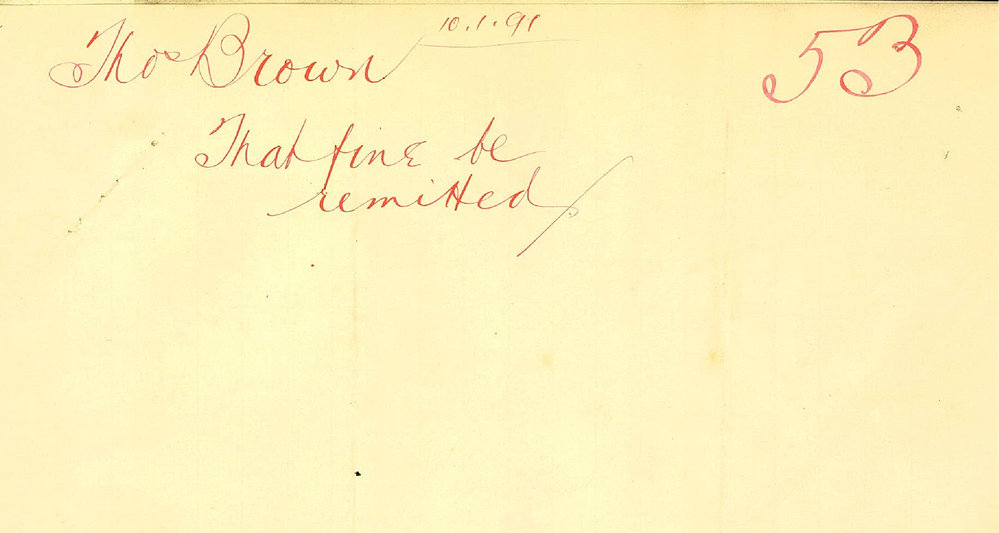 10.1.91
Thos Brown 53
That fine be
remitted.